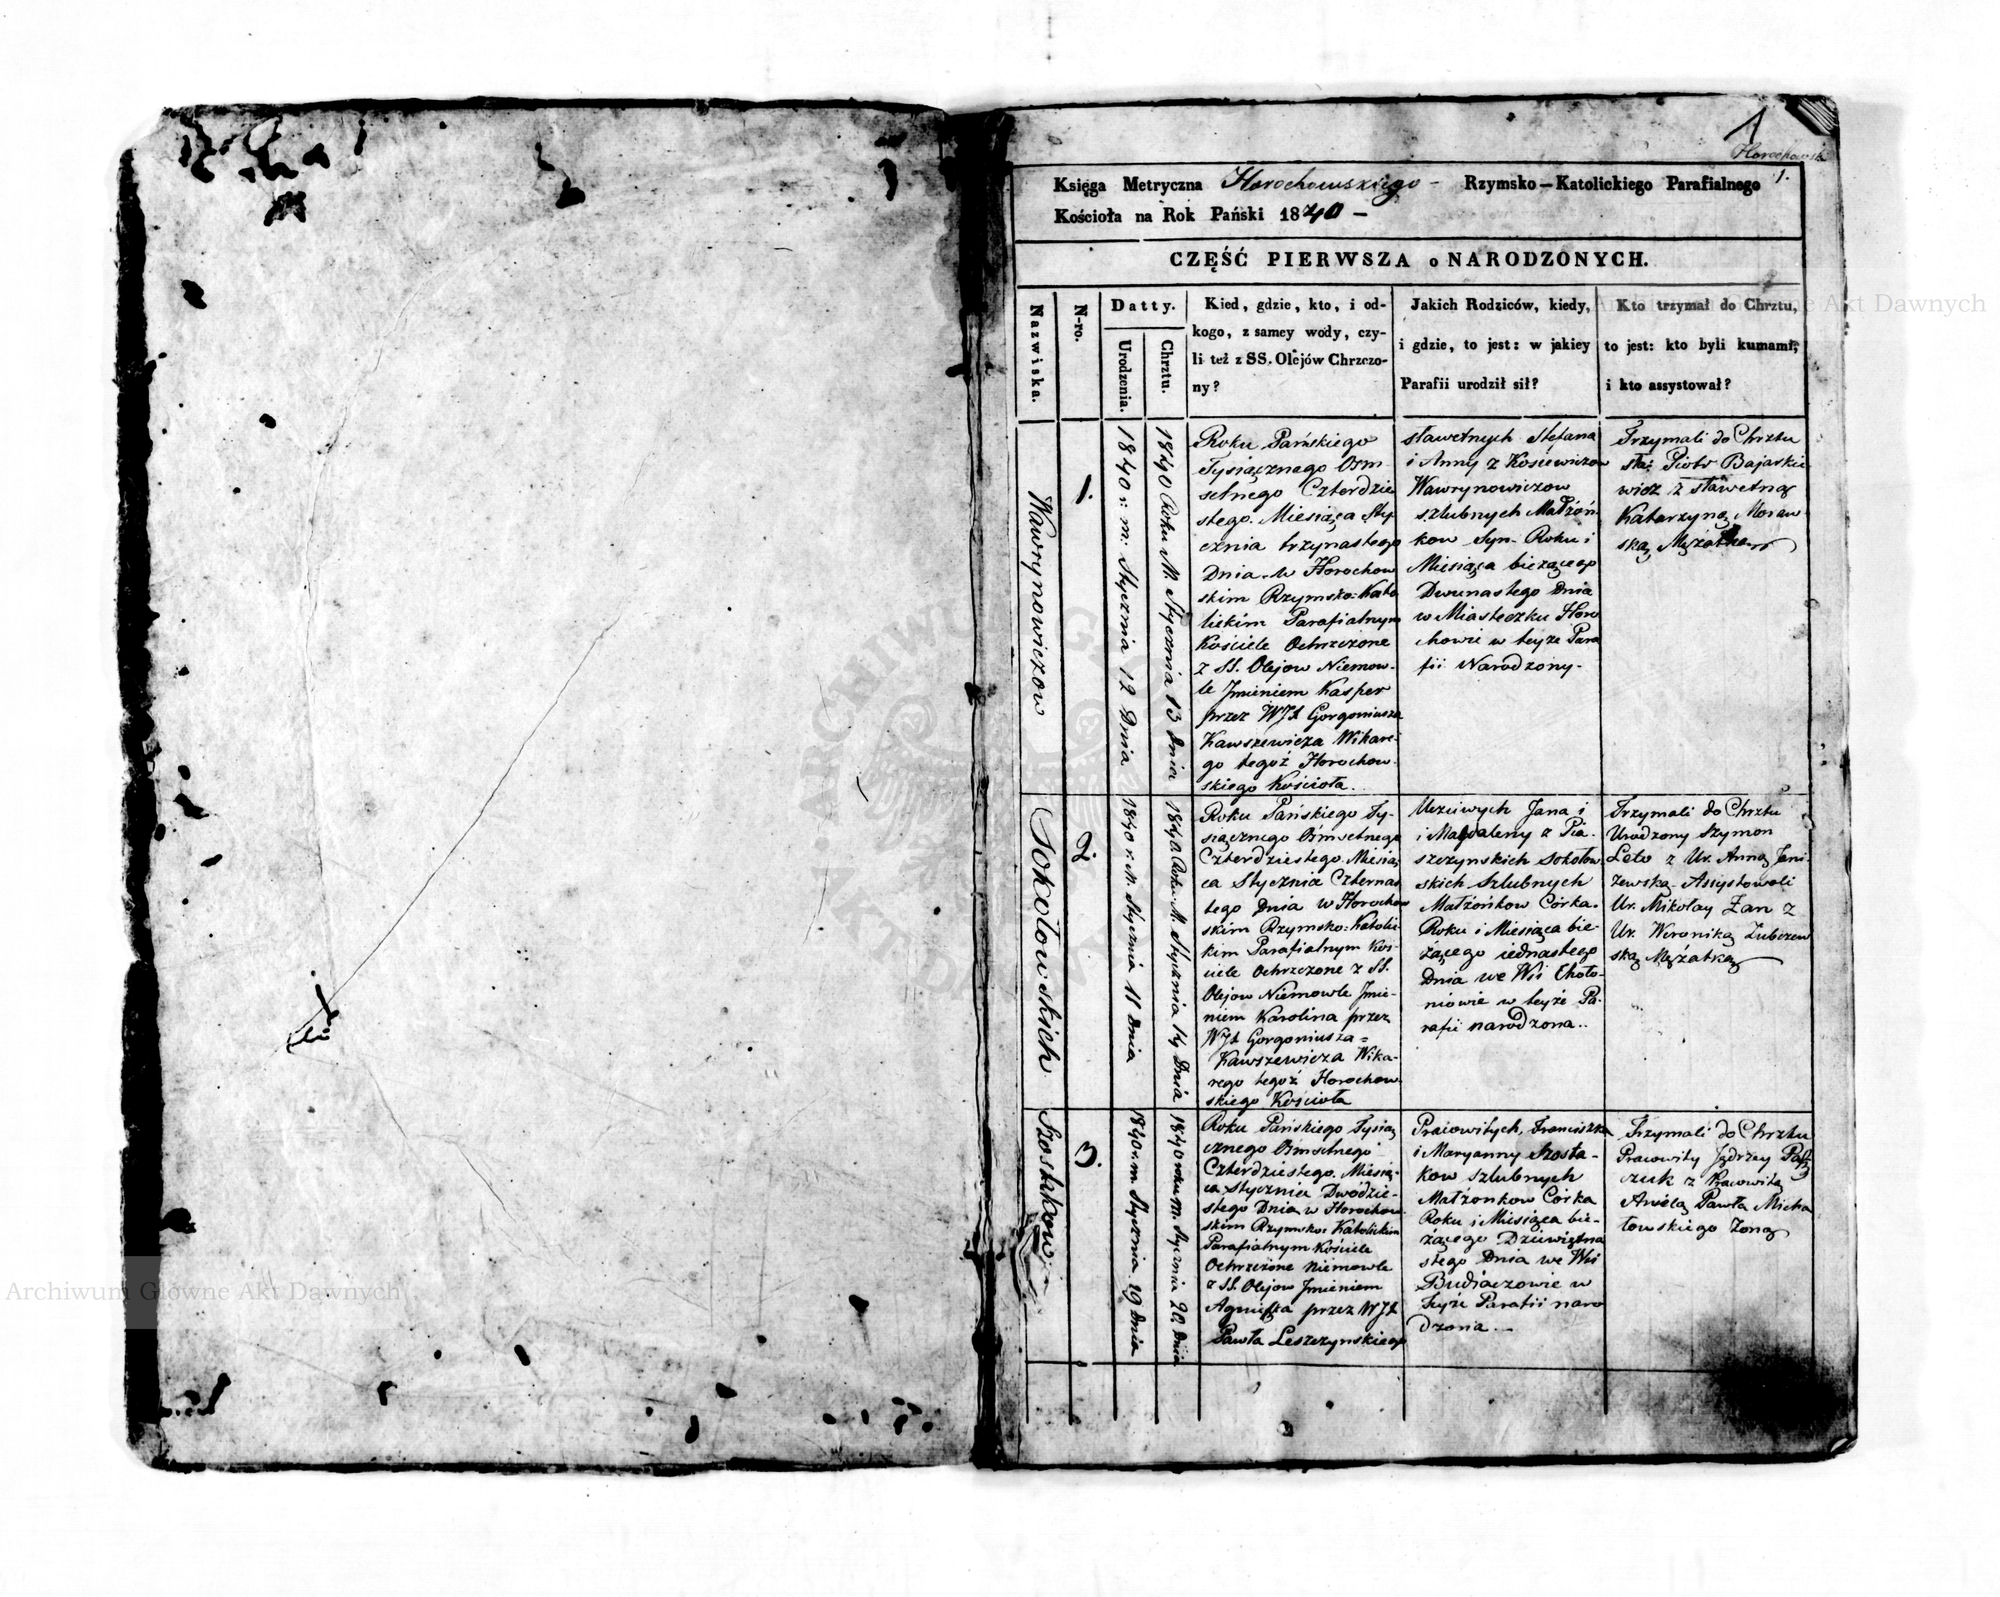 1
Horochowsk
1.
Księga Metryczna Horochowskiego - Rzymsko-Katolickiego Parafialnego
Kościoła na Rok Pański 1840 -
CZĘŚĆ PIERWSZA o NARODZONYCH.
Nazwiska.
N-ro.
Datty.
Urodzenia.
Chrztu.
Kied, gdzie, kto, i od-
kogo, z samey wody, czy-
li też z SS. Olejów Chrzczo-
ny?
Jakich Rodziców, kiedy,
i gdzie, to jest: w jakiey
Parafii urodził sił?
Kto trzymał do Chrztu,
to jest: kto byli kumami,
i kto assystował?
Wawrynowiczow
1.
1840 r: m: Stycznia 12 Dnia
1840 Roku M. Stycznia 13 dnia
Roku Pańskiego
Tysiącznego Osm-
setnego Czterdzie
stego. Miesiąca Sty-
cznia trzynastego
Dnia w Horochow
skim Rzymsko-Kato
lickim Parafialnym
Kościele Ochrzczone
z SS. Olejow Niemow-
le Jmieniem Kasper
przez WJX Gorgoniusza
Kawszewicza Wikare-
go tegoż Horochow-
skiego Kościoła.
sławetnych Stefana
i Anny z Kosiewiczow
Wawrynowiczow
szlubnych Małżon
kow Syn Roku i
Miesiąca bieżącego
Dwunastego Dnia
w Miasteczku Horo
chowie w teyże Para
fii Narodzony.
Trzymali do Chrztu
sła: Piotr Bajarkie
wicz z sławetną
Katarzyną Moraw-
ską Mężatką
Sokołowskich
2.
1840 r. M. Stycznia 11 dnia
1840 Roku M. Stycznia 14 Dnia
Roku Pańskiego Ty-
siącznego Osmsetnego
Czterdziestego Miesią
ca Stycznia Czternas
tego Dnia w Horochow
skim Rzymsko-Katolic
kim Parafialnym Koś-
ciele Ochrzczone z SS.
Olejow Niemowle Jmie-
niem Karolina przez
WJX Gorgoniusza=
Kawszewicza Wika-
rego tegoż Horochow-
skiego Kościoła
Uczciwych Jana i
i Magdaleny z Pia-
szczynskich Sokołow
skich Szlubnych
Małżonkow Corka.
Roku i Miesiąca bie-
żącego iednastego
Dnia we Wsi Choło-
niowie w teyże Pa-
rafii narodzona..
Trzymali do Chrztu
Urodzony Szymon
Leto z Ur. Anną Jani-
żewską. Assystowali
Ur. Mikołay Zan z
Ur. Weroniką Zubczew
ską Mężatką
Szostakow
3.
1840 r. m. Stycznia 19 dnia
1840 roku m. Stycznia 20 dnia
Roku Pańskiego Tysią
cznego Osmsetnego
Czterdziestego. Miesią-
ca Stycznia Dwódzie-
stego Dnia w Horochow
skim Rzymsko Katolickim
Parafialnym Kościele
Ochrzczone Niemowle
z SS. Olejow Jmieniem
Agnieszka przez WJX
Pawła Leszczynskiego
Pracowitych, Franciszka
i Maryanny Szosta-
kow szlubnych
Małżonkow Corka
Roku i Miesiąca bie-
żącego Dziewiętna
stego Dnia we Wsi
Budiaczowie w
teyże Parafii naro
dzona.-
Trzymali do Chrztu
Pracowity Jędrzey
czuk z Pracowitą
Anielą Pawła Micha
łowskiego Żoną
Archiwum Główne Akt Dawnych
Archiwum Główne Akt Dawnych